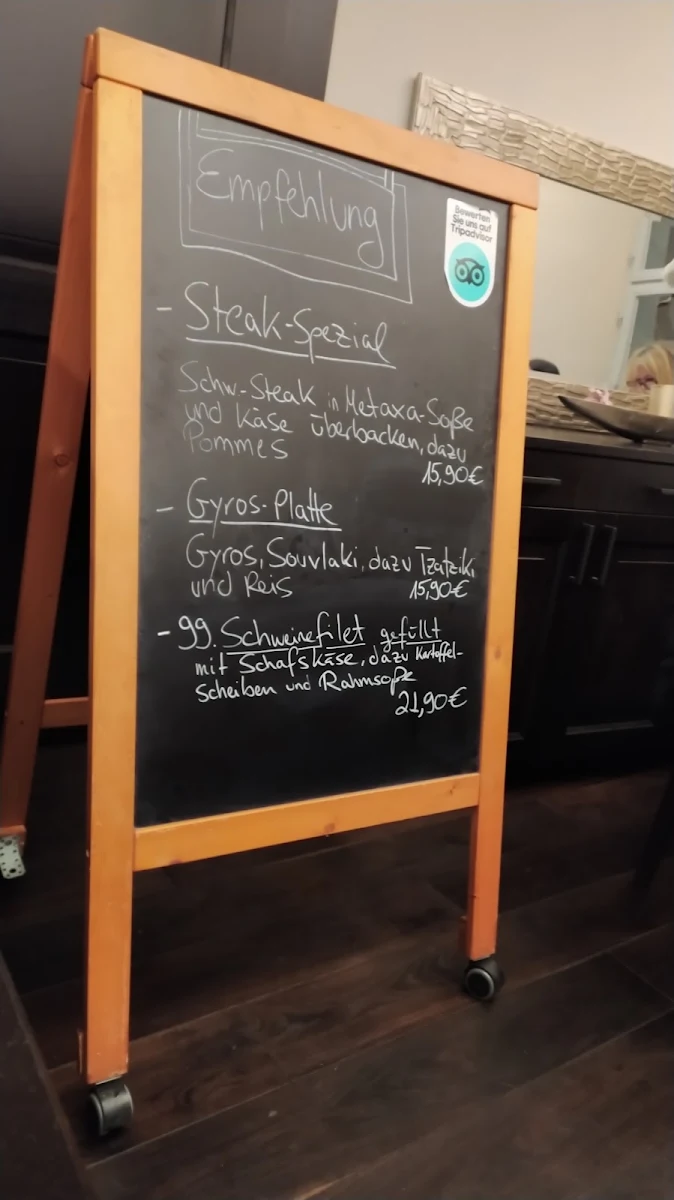 Empfehlung
Bewerten
Sie uns auf
Tripadvisor
- Steak-Spezial
Schw.-Steak in Metaxa-Soße
und Käse überbacken, dazu
Pommes
15,90€
- Gyros-Platte
Gyros, Souvlaki, dazu Tzatziki
und Reis
15,90€
- 99. Schweinefilet gefüllt
mit Schafskäse, dazu Kartoffel-
scheiben und Rahmsoße
21,90€